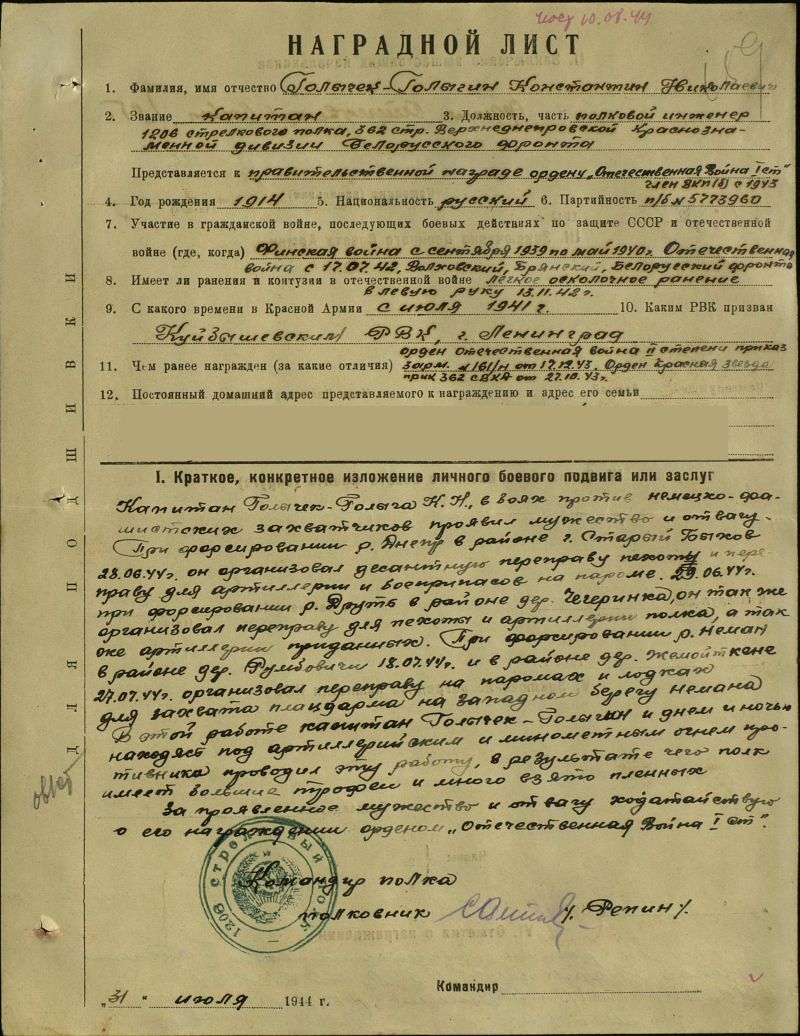 пост 10.08.44
НАГРАДНОЙ ЛИСТ
1. Фамилия, имя отчество Голычек-Голыгин Константин Николаевич
2. Звание капитан 3. Должность, часть полковой инженер
1208 стрелкового полка, 362 стр. Верхнеднепровской Краснозна-
менной дивизии Белорусского фронта
Представляется к правительственной награде ордену „Отечественная Война I ст"
член ВКП(б) с 1943
4. Год рождения 1914 5. Национальность русский 6. Партийность п/б № 5773960
7. Участие в гражданской войне, последующих боевых действиях по защите СССР и отечественной
войне (где, когда) Финская война с сентября 1939 по май 1940г. Отечественная
война с 17.07.42, Волховский, Брянский, Белорусский фронта
8. Имеет ли ранения и контузии в отечественной войне легкое осколочное ранение
в левую руку 13.11.42г.
9. С какого времени в Красной Армии с июля 1941г. 10. Каким РВК призван
Куйбышевским РВК, г. Ленинград
орден Отечественная война II степени приказ
11. Чем ранее награжден (за какие отличия) 3 арм. № 161/н от 17.12.43. Орден Красная Звезда
прик 362 СВКА от 27.10.43г.
12. Постоянный домашний адрес представляемого к награждению и адрес его семьи
ДЛЯ ПОДШИВКИ
I. Краткое, конкретное изложение личного боевого подвига или заслуг
Капитан Голычек-Голыга К.Н., в боях против немецко-фа-
шистских захватчиков проявил мужество и отвагу.
При форсировании р. Днепр в районе г. Старый Быхов
28.06.44г. он организовал десантную переправу пехоты и пере
праву для артиллерии и боеприпасов на пароме. 29.06.44г.
при форсировании р. Друть в районе дер. Чегеринка, он так же
организовал переправу для пехоты и артиллерии полка, а так
же артиллерии приданных. При форсировании р. Неман
в районе дер. Румбовичи 18.07.44г. и в районе дер. Жемойткене
27.07.44г. организовал переправу на паромах и лодках
для захвата плацдарма на западном берегу Немана
В этой работе капитан Голычек-Голыгин и днем и ночью
находясь под артиллерийским и минометным огнем про-
тивника проводил эту работу, в результате чего полк
имеет большие трофеи и много взято пленных
За проявленное мужество и отвагу ходатайствую
о его награждении орденом „Отечественная Война I ст".
1208 стрелковый полк
Командир полка
полковник /Репин/.
Командир
„31" июля 1944 г.